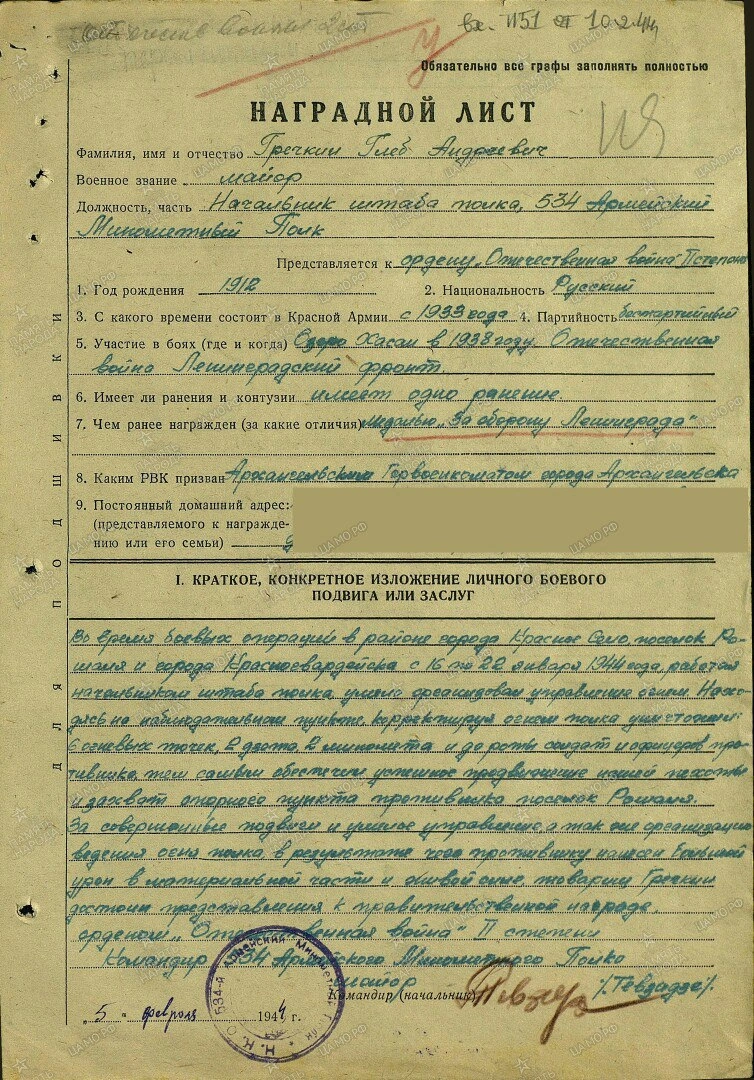 Отечествен войны 2 ст
вх. 1151 от 10.2.44
Обязательно все графы заполнять полностью
НАГРАДНОЙ ЛИСТ
Фамилия, имя и отчество Гречкин Глеб Андреевич
Военное звание майор
Должность, часть Начальник штаба полка, 534 Армейский
Минометный Полк
Представляется к ордену „Отечественная война" II степени
1. Год рождения 1912 2. Национальность Русский
3. С какого времени состоит в Красной Армии с 1933 года 4. Партийность беспартийный
5. Участие в боях (где и когда) Озеро Хасан в 1938 году. Отечественная
война Ленинградский фронт.
6. Имеет ли ранения и контузии имеет одно ранение.
7. Чем ранее награжден (за какие отличия) медалью „За оборону Ленинграда"
8. Каким РВК призван Архангельским Горвоенкоматом города Архангельска
9. Постоянный домашний адрес:
(представляемого к награжде-
нию или его семьи)
I. КРАТКОЕ, КОНКРЕТНОЕ ИЗЛОЖЕНИЕ ЛИЧНОГО БОЕВОГО
ПОДВИГА ИЛИ ЗАСЛУГ
Во время боевых операций в районе города Красное Село, поселок Ро-
шаля и города Красногвардейска с 16 по 22 января 1944 года, работая
начальником штаба полка умело организовал управление огнем. Нахо-
дясь на наблюдательном пункте, корректируя огнем полка уничтожил:
6 огневых точек, 2 дзота, 2 миномета и до роты солдат и офицеров про-
тивника, тем самым обеспечил успешное продвижение нашей пехоты
и захват опорного пункта противника поселок Рошаля.
За совершонные подвиги и умелое управление а так же организацию
ведения огня полка, в результате чего противнику нанесен большой
урон в материальной части и живой силе, товарищ Гречкин
достоин представления к правительственной награде,
орденом „Отечественная война" II степени
Командир 534 Армейского Минометного Полка
майор
Командир (начальник) /Тевзадзе/.
„5" февраля 1944 г.
534-й Армейский Минометный Полк * Н.К.О.
ДЛЯ ПОДШИВКИ